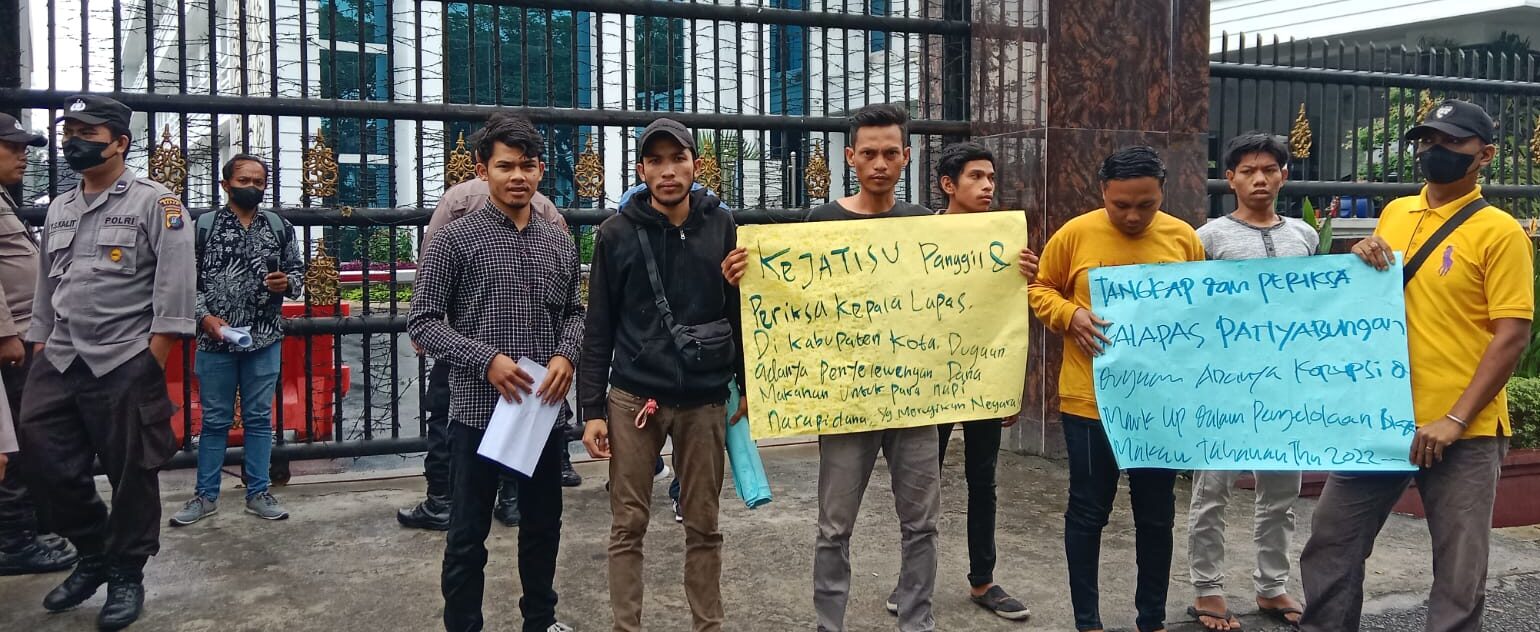 T.S.KALIT POLRI
KEJATISU Panggil &
Periksa Kepala Lapas.
Di Kabupaten Kota. Dugaan
adanya Penyelewengan Dana
Makanan Untuk para napi
narapidana, Sg Merugikan Negara
TANGKAP dan PERIKSA
KALAPAS PANYABUNGAN
Dugaan Adanya Korupsi &
Mark Up dalam Pengelolaan
Makan Tahanan Thn 2022